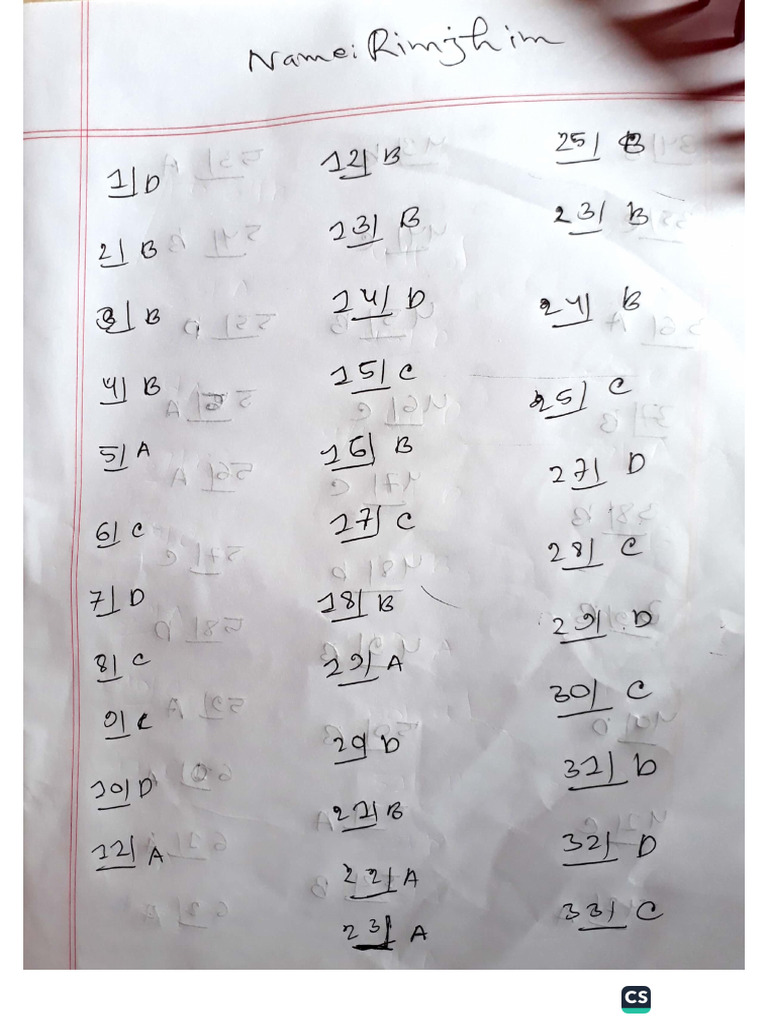 Name: Rimjhim
1/ D
2/ B
3/ B
4/ B
5/ A
6/ C
7/ D
8/ C
9/ C
10/ D
11/ A
12/ B
13/ B
14/ D
15/ C
16/ B
17/ C
18/ B
19/ A
20/ D
21/ B
22/ A
23/ A
25/ B
23/ B
24/ B
25/ C
27/ D
28/ C
29/ D
30/ C
31/ D
32/ D
33/ C
CS